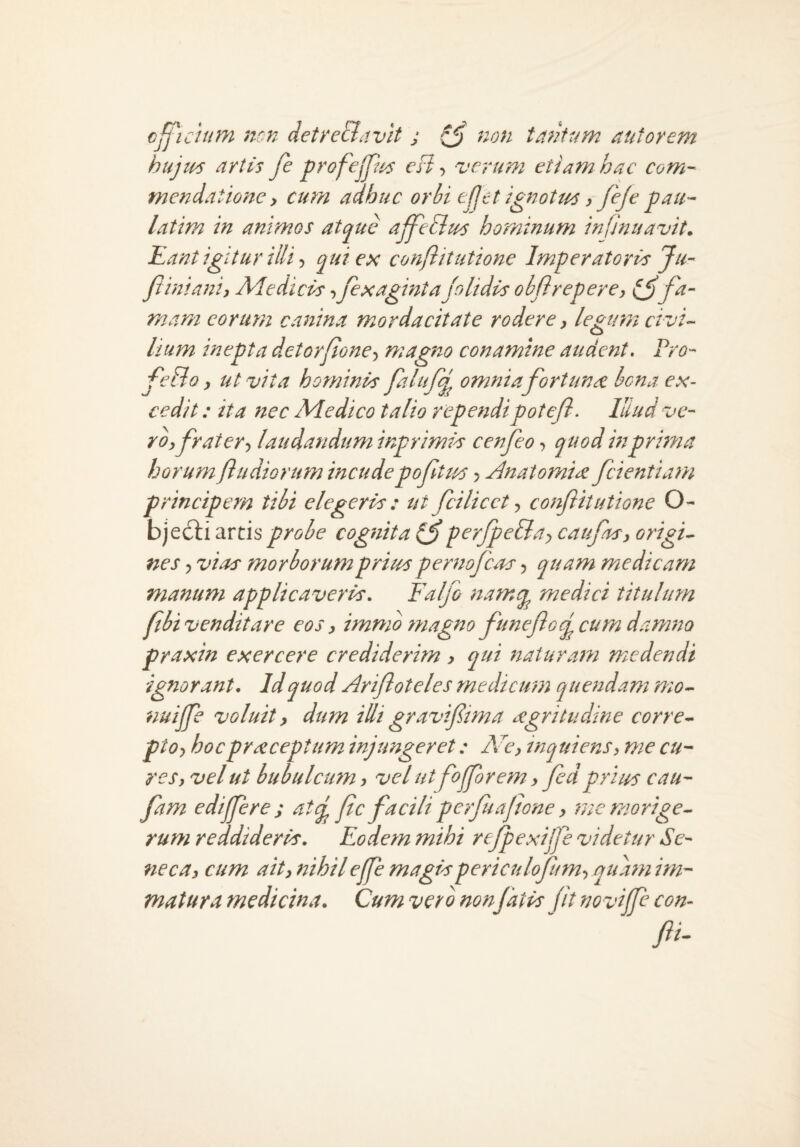 officium non detrectavit ; & non tantum autorem
hujus artis se professus est, verum etiam hac com-
mendatione, cum adhuc orbi esset ignotus, sese pau-
latim in animos atquè affectus hominum insinuavit.
Eant igitur illi, qui ex constitutione Imperatoris Ju-
stiniani, Medicis, sexaginta solidis obstrepere, & fa-
mam eorum canina mordacitate rodere, legum civi-
lium inepta detorsione, magno conamine audent. Pro-
fecto, ut vita hominis salusq; omnia fortunæ bona ex-
cedit: ita nec Medico talio rependi potest. Illud ve-
rò, frater, laudandum inprimis censeo, quod in prima
horum studiorum incude positus, Anatomiæ scientiam
principem tibi elegeris: ut scilicet, constitutione O-
bjecti artis probe cognita & perspecta, causas, origi-
nes, vias morborum prius pernoscas, quam medicam
manum applicaveris. Falso namq; medici titulum
sibi venditare eos, immò magno funestoq; cum damno
praxin exercere crediderim, qui naturam medendi
ignorant. Id quod Aristoteles medicum quendam mo-
nuisse voluit, dum illi gravissima ægritudine corre-
pto, hoc præceptum injungeret: Ne, inquiens, me cu-
res, velut bubulcum, vel ut fossorem, sed prius cau-
sam edissere; atq; sic facili persuasione, me morige-
rum reddideris. Eodem mihi respexisse videtur Se-
neca, cum ait, nihil esse magis periculosum, quàm im-
matura medicina. Cum verò non satis sit novisse con-
sti-